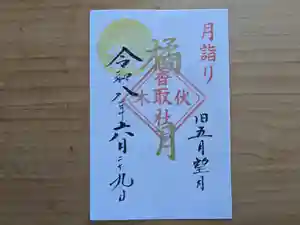 月詣り
旧五月望月
橘月
香取社
伏木
令和八年六月二十九日